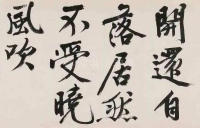 開還自
落居然
不受曉
風吹